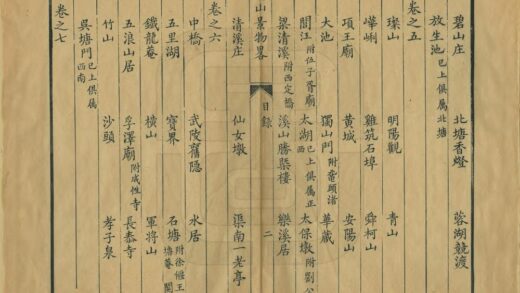 碧山庄 北塘香燈 蓉湖競渡
放生池 已上俱屬北塘
卷之五
璨山 明陽觀 青山
雞筑石埠 舜柯山
項王廟 黃城 安陽山
大池 獨山門 附黿頭渚 華藏
閭江 附伍子胥廟 太湖 已上俱屬正西 太保墩 附劉公
梁清溪 附西定橋 溪山勝槩樓 樂溪居
山景物畧 目錄 二
清溪庄 仙女墩 渠南一老亭
卷之六
中橋 武陵舊隱 水居
五里湖 寶界 石塘 附徐偃王
鐵龍菴 橫山 軍將山
五浪山居 孚澤廟 附成性寺 長泰寺
竹山 沙頭 孝子泉
吳塘門 已上俱屬西南
卷之七